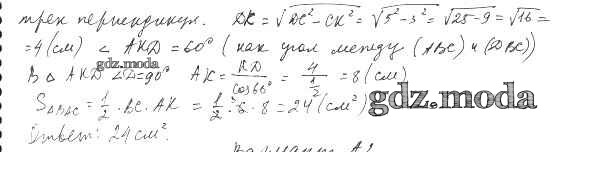 трех перпендикул. DK = √DC² − CK² = √5² − 3² = √25 − 9 = √16 =
= 4 (см) ∠ AKD = 60° (как угол между (ABC) и (DBC))
gdz.moda
В Δ AKD ∠D = 90° AK = KD/cos60° = 4/(1/2) = 8 (см)
S ΔBAC = 1/2 · BC · AK = 1/2 · 6 · 8 = 24 (см²)
gdz.moda
Ответ: 24 см².